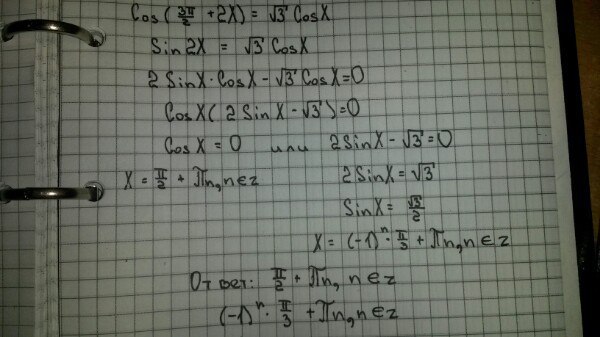 Cos(3π/2 + 2X) = √3 CosX
Sin2X = √3 CosX
2SinX·CosX - √3 CosX = 0
CosX(2SinX - √3) = 0
CosX = 0 или 2SinX - √3 = 0
X = π/2 + πn, n∈z 2SinX = √3
SinX = √3/2
X = (-1)ⁿ · π/3 + πn, n∈z
Ответ: π/2 + πn, n∈z
(-1)ⁿ · π/3 + πn, n∈z